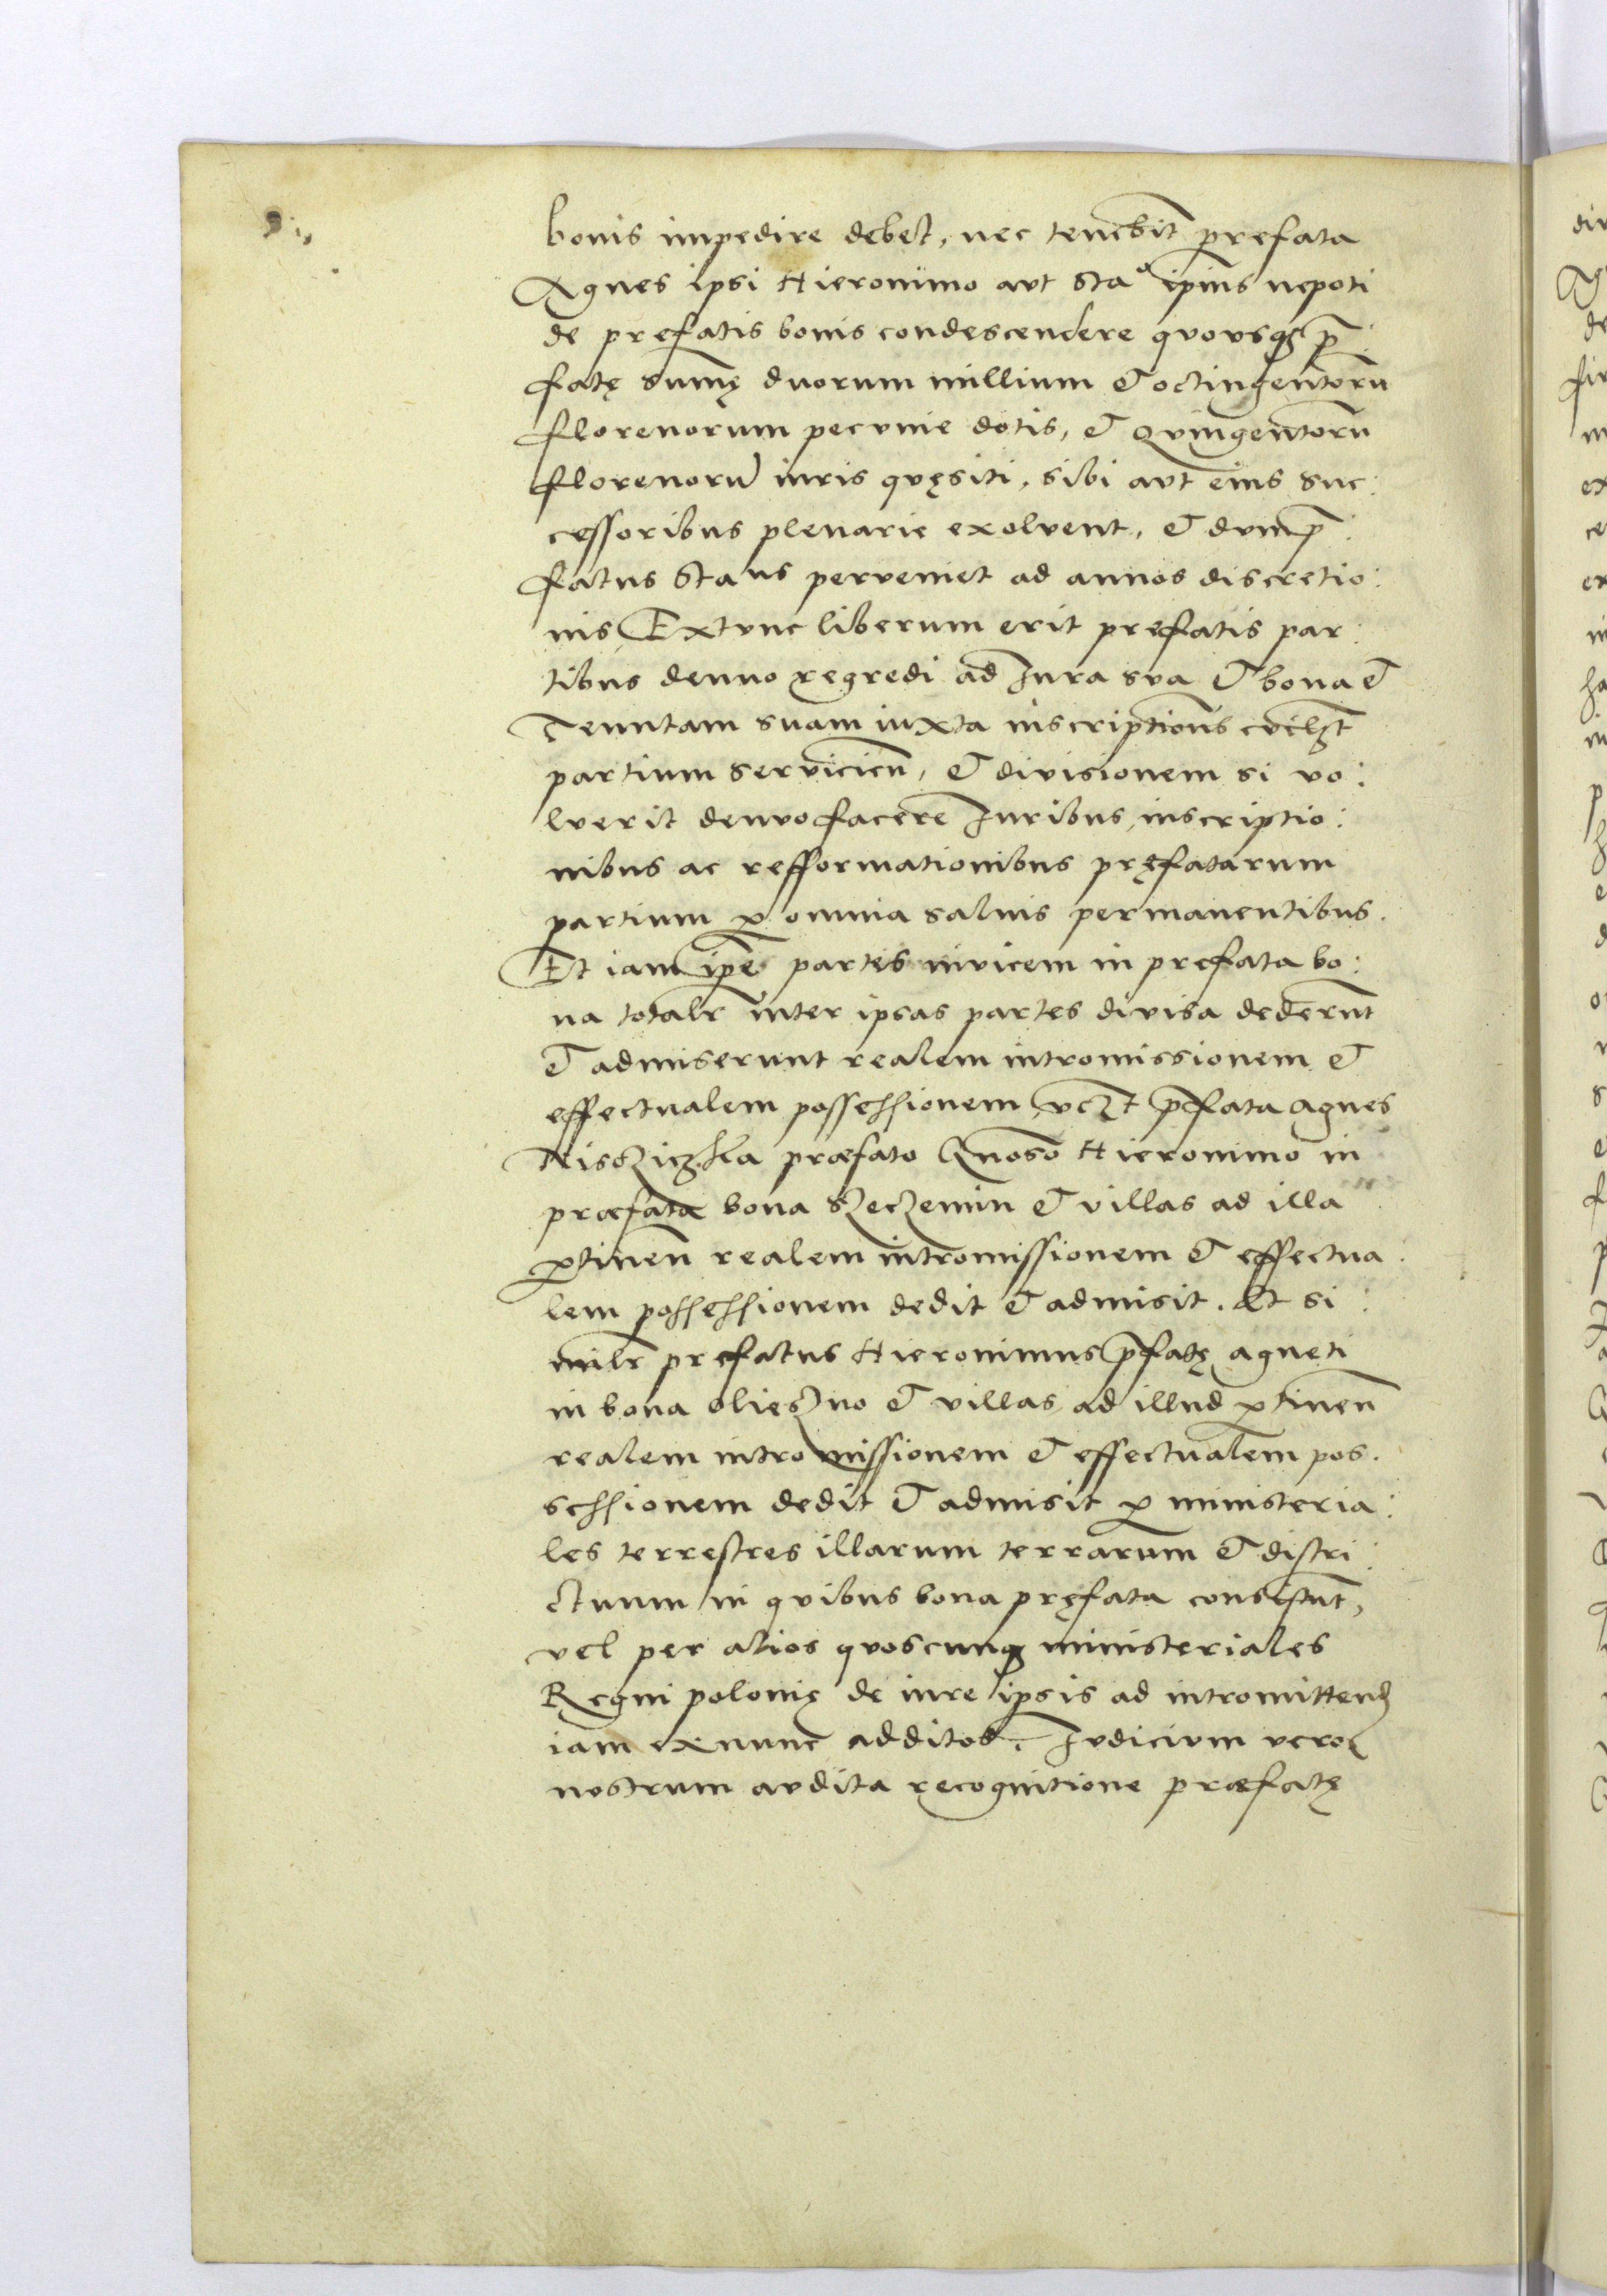 bonis impedire debet, nec tenebit prefata
Agnes ipsi Hieronimo aut Stao ipius nepoti
de prefatis bonis condescendere quousq; p̄
fatę sumę duorum millium et octingentoru
florenorum pecunie dotis, et Quingentoru
florenoru iuris quęsiti, sibi aut eius suc:
cessoribus plenarie exolvent, et dum p̄
fatus Staus perveniet ad annos discretio:
nis, Extunc liberum erit prefatis par:
tibus denuo regredi ad Iura sua et bona et
Tenutam suam iuxta inscriptions
partium servicien, et divisionem si vo:
luerit denuo facere Iuribus, inscriptio:
nibus ac refformationibus pręfatarum
partium p omnia salvis permanentibus.
Et iam ipe partes invicem in prefata bo:
na totalr inter ipsas partes divisa dederunt
et admiserunt realem intromissionem et
effectualem possessionem vczt p̄fata Agnes
præfato Gnoso Hieronimo in
præfata bona SzeczeminUND et villas ad illa
ptinen realem intromissionem et effectua
lem possessionem dedit et admisit. Et si
milr prefatus Hieronimus p̄fatę Agneti
in bona Olieszno et villas ad illud ptinen
realem intromissionem et effectualem pos.
sessionem dedit et admisit p ministeria:
les terrestres illarum terrarum et distri:
ctuum in quibus bona pręfata consistunt,
vel per alios quoscunq; ministeriales
Regni polonię de iure ipsis ad intromittend
iam exnunc additos. Iudicium vero
nostrum audita recognitione præfatę